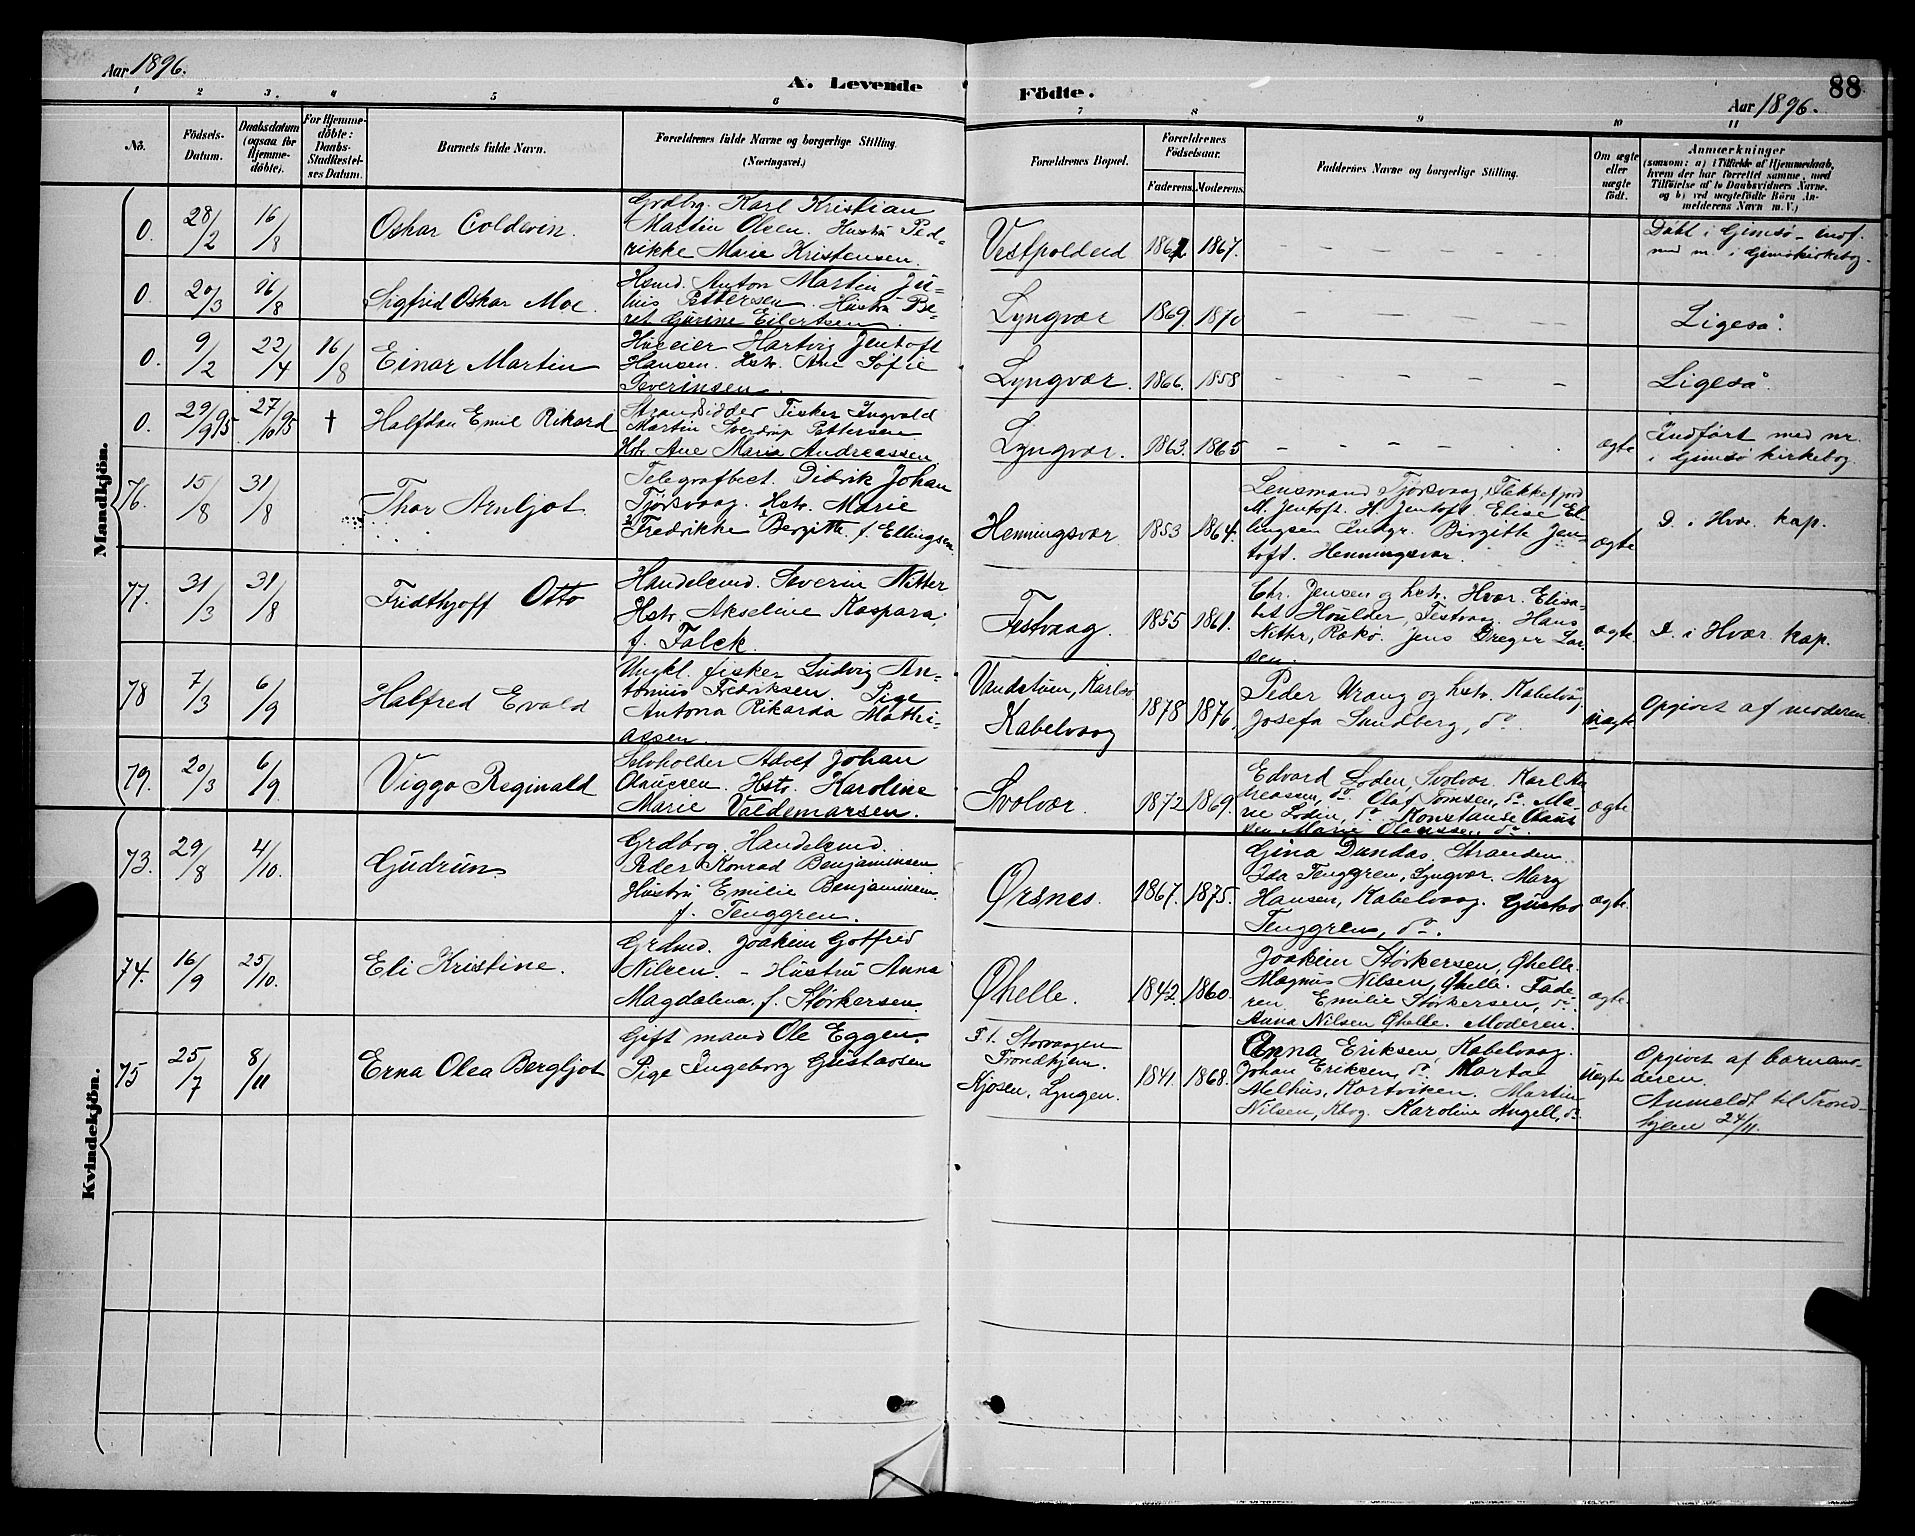 Aar 1896.
A. Levende Födte.
88
Aar 1896.
1 2 3. 4 5 6 7 8 9 10 11
No. Födsels-Datum. Daabsdatum (ogsaa for Hjemme-döbte). For Hjemme-döbte: Daabs-Stadfæstel-ses Datum. Barnets fulde Navn. Forældrenes fulde Navne og borgerlige Stilling. (Næringsvei.) Forældrenes Bopæl. Forældrenes Födselsaar. Faderens. Moderens. Faddernes Navne og borgerlige Stilling. Om ægte eller uægte födt. Anmærkninger (saasom: a) i Tilfælde af Hjemmedaab, hvem der har forrettet samme, med Tilföielse af to Daabsvidners Navne. og b) ved uægtefödte Börn An-melderens Navn m. V.)
Mandkjön.
0. 28/2 16/8 Oskar Coldevin.
Grdbr. Karl Kristian
Martin Olsen. Hustru Fred-
rikke Marie Kristensen.
Vestpoldeid 1867. Döbt i Gimsö – indf.
med nr. i Gimsö kirkebog.
0. 20/3 16/8 Sigfred Oskar Moe.
Hsmd. Anton Martin Ju-
lius Pettersen. Hustru Be-
ret Gurine Eilertsen.
Lyngvær 1869. 1870 Ligeså.
0. 9/2 22/4 16/8 Einar Martin
Huseier Hartvig Jentoft
Hansen. Hstr. Ane Sofie
Severinsen.
Lyngvær. 1866. 1858 Ligeså.
0. 29/9 95 27/10 95 † Halfdan Emil Rikard
Strandsidder Fisker Ingvald
Martin Sverdrup Pettersen
Hstr. Ane Maria Andreassen
Lyngvær. 1863. 1865 ægte Indført med nr.
i Gimsö kirkebog.
76. 15/8 31/8 Thor Arnljot
Telegrafbest. Didrik Johan
Tjörsvaag. Hstr. Marie
Fredrikke Bergitte f. Ellingsen.
Henningsvær 1853 1864.
Lensmand Tjörsvaag, Flekkefjord
M. Jentoft. H. Jentoft. Elise El-
lingsen Birgitte Jen-
toft. Henningsvær.
ægte D. i Hvær. kap.
77. 31/3 31/8 Fridthjoff Otto
Handelsmd. Severin Nitter
Hstr. Akseline Kaspara,
f. Falck.
Festvaag. 1855 1861.
Chr. Jensen og hstr. Hvær. Elisa-
bet Houlder, Festvaag. Hans
Nitter, Jens Dreyer Lar-
sen.
ægte D. i Hvær. kap.
78 7/3 6/9 Halfred Evald
Ungkl. fisker Ludvig An-
tonius Fredriksen. Pige
Antona Rikarda Mathi-
assen.
Kabelvaag 1878 1876.
Peder Wrang og hstr. Kabelvåg.
Josefa Sundberg, do
uægte Opgivet af moderen
79. 20/3 6/9 Viggo Reginald
Selvholder Adolf Johan
Claussen. Hstr. Karoline
Marie Valdemarsen.
Svolvær. 1872 1869.
Edvard Loden, Svolvær. Karl An-
dreassen, do. Olaf Tomsen, do. Ma-
rie Loden, do. Konstanse Claus-
sen Marie Clausen do.
ægte
Kvindekjön.
73. 29/8 4/10. Gudrun
Grdbrg. Handelsmd.
Peder Konrad Benjaminsen
Hustru Emilie Benjaminsen
f. Tenggren.
Ørsnes. 1867. 1875.
Gina Dundas. Stranden.
Ida Tenggren, Lyngvær. Mary
Hansen, Kabelvaag. Gustav
Tenggren, do.
ægte.
74. 16/9 25/10. Eli Kristine.
Grdmd. Joakim Gotfred
Nilsen. – Hustru Anna
Magdalena, f. Störkersen.
Øhelle. 1842. 1860.
Joakim Störkersen, Øhelle.
Magnus Nilsen, Øhelle. Fade-
ren. Emilie Störkersen, do
Anna Nilsen Øhelle. Moderen.
ægte.
75 25/7 8/11 Erna Olea Bergljot
Gift mand Ole Eggen.
Pige Ingeborg Gustavsen
Storvaagen
Trondhjem.
Kjosen, Lyngen. 1841. 1868.
Anna Eriksen, Kabelvaag.
Johan Eriksen, do Marta
Melhus, Kortviken. Martin
Nilsen, Kbvg. Karoline Angell, do
uægte Opgivet af barnemo-
deren.
Anmeldt til Trond-
hjem 24/11.